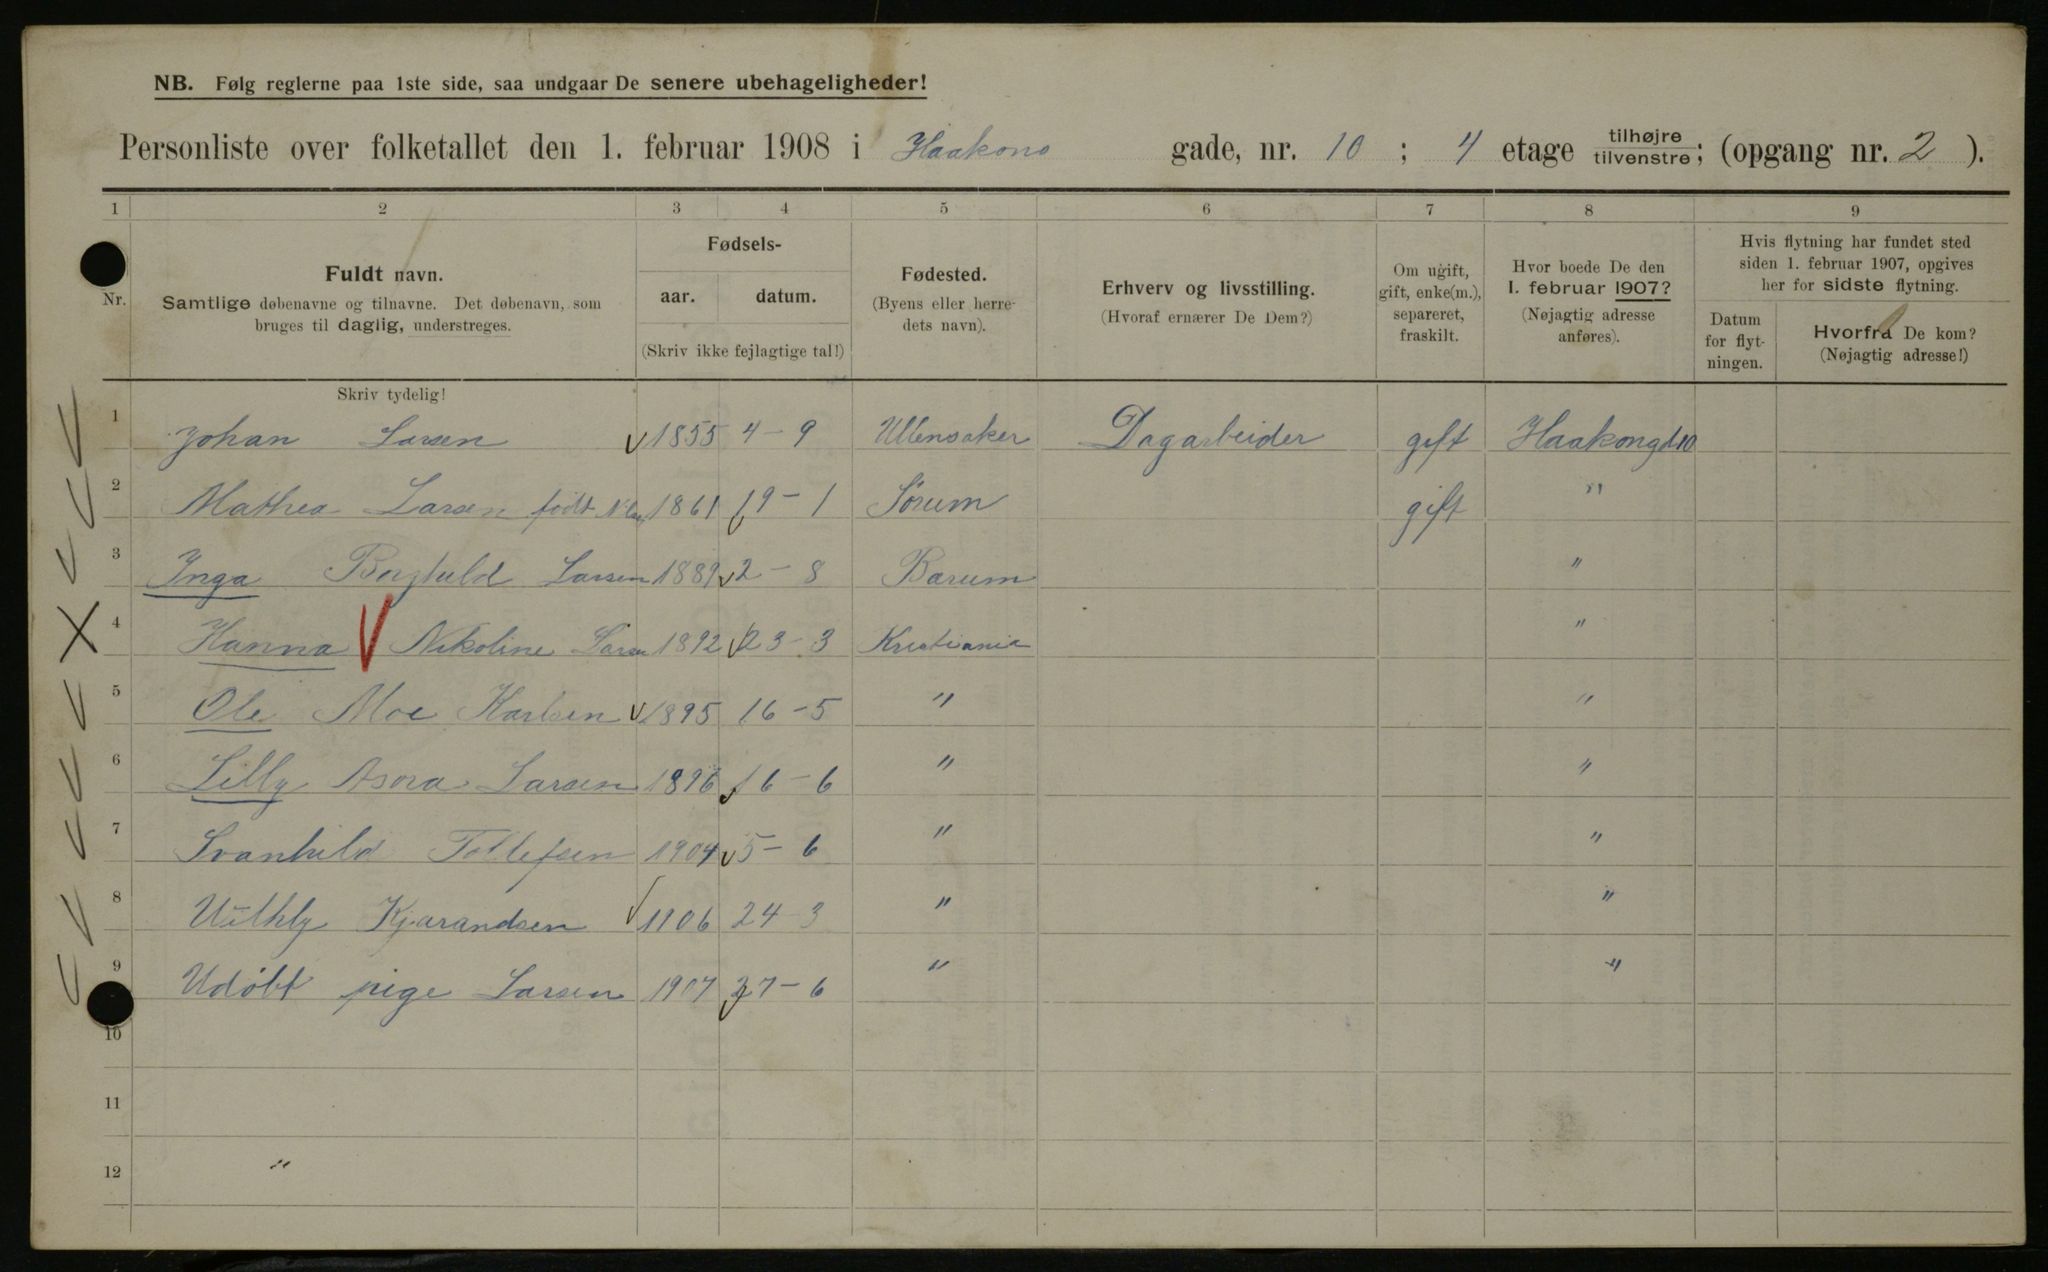 NB. Følg reglerne paa 1ste side, saa undgaar De senere ubehageligheder!
Personliste over folketallet den 1. februar 1908 i Haakons gade, nr. 10 ; 4 etage tilhøjre tilvenstre; (opgang nr. 2 ).
1 2 3 4 5 6 7 8 9
Nr.
Fuldt navn.
Samtlige døbenavne og tilnavne. Det døbenavn, som
bruges til daglig, understreges.
Skriv tydelig!
Fødsels-
aar. datum.
(Skriv ikke fejlagtige tal!)
Fødested.
(Byens eller herre-
dets navn).
Erhverv og livsstilling.
(Hvoraf ernærer De Dem?)
Om ugift,
gift, enke(m.),
separeret,
fraskilt.
Hvor boede De den
1. februar 1907?
(Nøjagtig adresse
anføres).
Hvis flytning har fundet sted
siden 1. februar 1907, opgives
her for sidste flytning.
Datum
for flyt-
ningen.
Hvorfra De kom?
(Nøjagtig adresse!)
1 Johan Larsen 1855 4-9 Ullensaker Dagarbeider gift Haakongd 10
2 Mathea Larsen født 1861 19-1 Sørum gift "
3 Inga Borghild Larsen 1889 2-8 Barum "
4 Hanna Nikoline Larsen 1892 23-3 Kristiania "
5 Ole Moe Karlsen 1895 16-5 " "
6 Lilly Asora Larsen 1896 16-6 " "
7 Svanhild Tollefsen 1904 5-6 " "
8 Kjarandsen 1906 24-3 " "
9 Udøbt pige Larsen 1907 27-6 " "
10
11
12 "